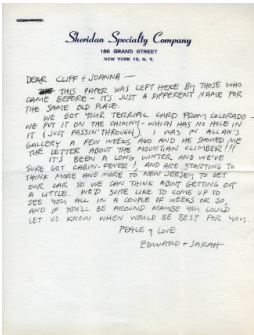 Sheridan Specialty Company
186 GRAND STREET
NEW YORK 13, N.Y.
DEAR CLIFF + JOANNA —
THIS PAPER WAS LEFT HERE BY THOSE WHO
CAME BEFORE – IT'S JUST A DIFFERENT NAME FOR
THE SAME OLD PLACE.
WE GOT YOUR TERRIAL CARD FROM COLORADO –
WE PUT IT ON THE CHIMNY – WHICH HAS NO HOLE IN
IT (JUST PASSIN' THROUGH). I WAS IN ALLAN'S
GALLERY A FEW WEEKS AGO AND HE SHOWED ME
THE LETTER ABOUT THE MOUNTIAN CLIMBER!!!
IT'S BEEN A LONG, WINTER AND WE'VE
SURE GOT CABIN FEVER, AND ARE STARTING TO
THINK MORE AND MORE TO NEW JERSEY TO GET
OUR CAR SO WE CAN THINK ABOUT GETTING OUT
A LITTLE. WE'D SURE LIKE TO COME UP TO
SEE YOU ALL IN A COUPLE OF WEEKS OR SO,
AND IF YOU'LL BE AROUND MAYBE YOU COULD
LET US KNOW WHEN WOULD BE BEST FOR YOU.
PEACE & LOVE
EDWARD + SARAH